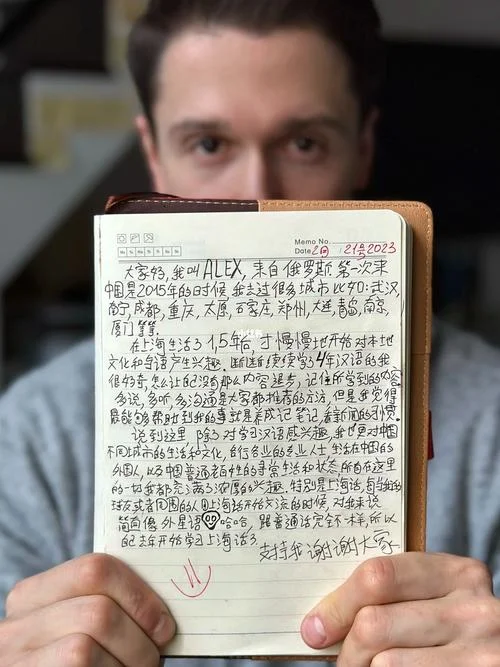 Memo No.
Date 2月 21号2023
大家好,我叫ALEX,来自俄罗斯.第一次来
中国是2015年的时候.我去过很多城市比如:武汉,
南宁,成都,重庆,太原,石家庄,郑州,大连,青岛,南京,
厦门等等.
在上海生活了1,5年后才慢慢地开始对本地
文化和母语产生兴趣.断断续续学了4年汉语的我
很好奇,怎么让自己没有那么内容退步,记住所学到的内容
多说,多听,多沟通是大家都推荐的方法,但是我觉得
最能够帮助到我的事就是养成记笔记,看新闻的习惯.
说到这里 除了对学习汉语感兴趣,我也更对中国
不同城市的生活和文化,各行各业的专业人士 生活在中国的
外国人,以及中国普通老百姓的寻常生活和状态,所有在这里
的一切我都充满了浓厚的兴趣.特别是上海话,每当我的
朋友或者周围的人用上海话开始交流的时候,对我来说
简直像外星语 哈哈,跟普通话完全不一样,所以
自己去年开始学习上海话了.
支持我谢谢大家
小红书